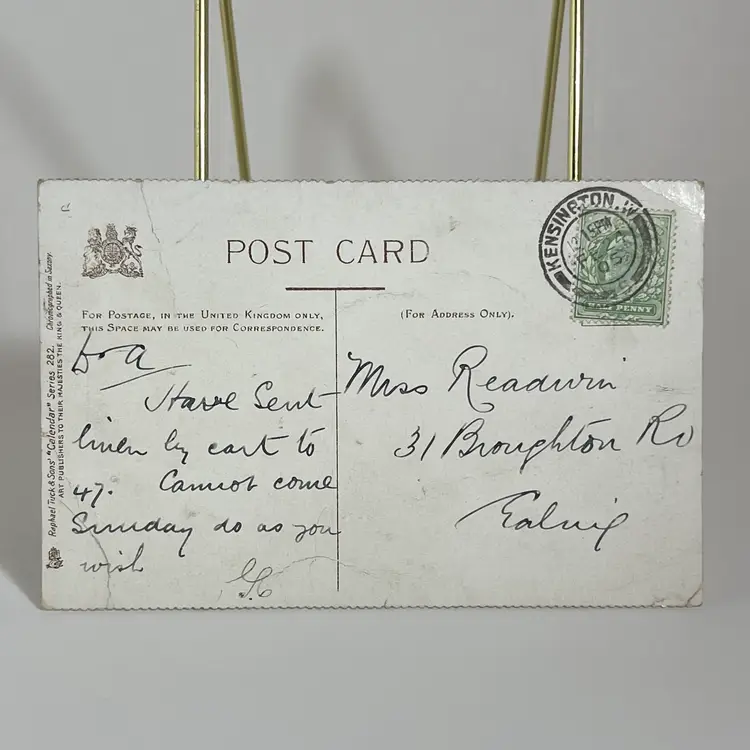 POST CARD
FOR POSTAGE, IN THE UNITED KINGDOM ONLY,
THIS SPACE MAY BE USED FOR CORRESPONDENCE.
(FOR ADDRESS ONLY).
Have Sent
linen by cart to
47. Cannot come
Sunday do as you
wish
Miss Readwin
31 Broughton Rd
Ealing
KENSINGTON. W
PENNY
Raphael Tuck & Sons' "Calendar" Series 282. Chromographed in Saxony.
ART PUBLISHERS TO THEIR MAJESTIES THE KING & QUEEN.